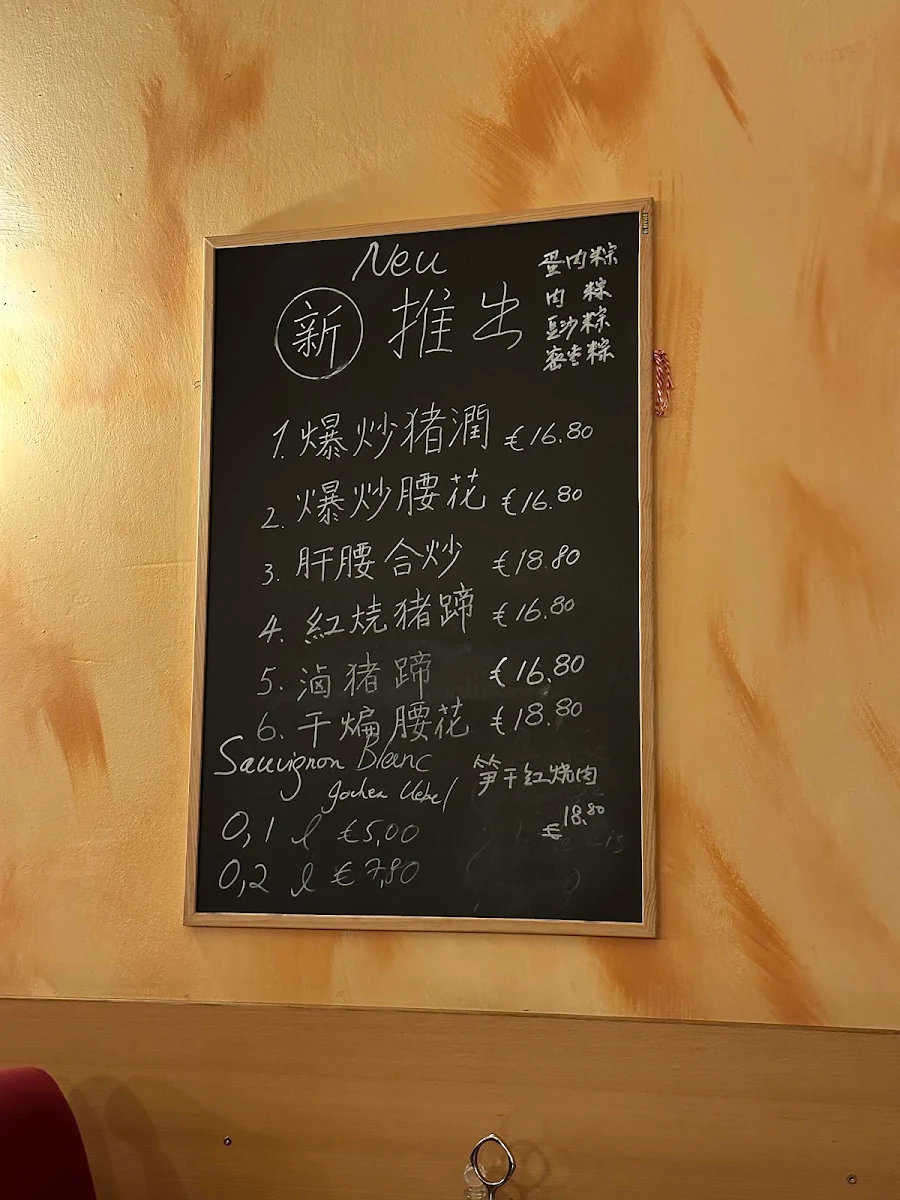 Neu
新 推出
蛋肉粽
肉 粽
豆沙粽
密枣粽
1. 爆炒猪潤 €16.80
2. 爆炒腰花 €16.80
3. 肝腰合炒 €18.80
4. 紅燒猪蹄 €16.80
5. 滷猪蹄 €16.80
6. 干煸腰花 €18.80
Sauvignon Blanc
0,1 l €5,00
0,2 l €7,80
笋干红烧肉
€18.80